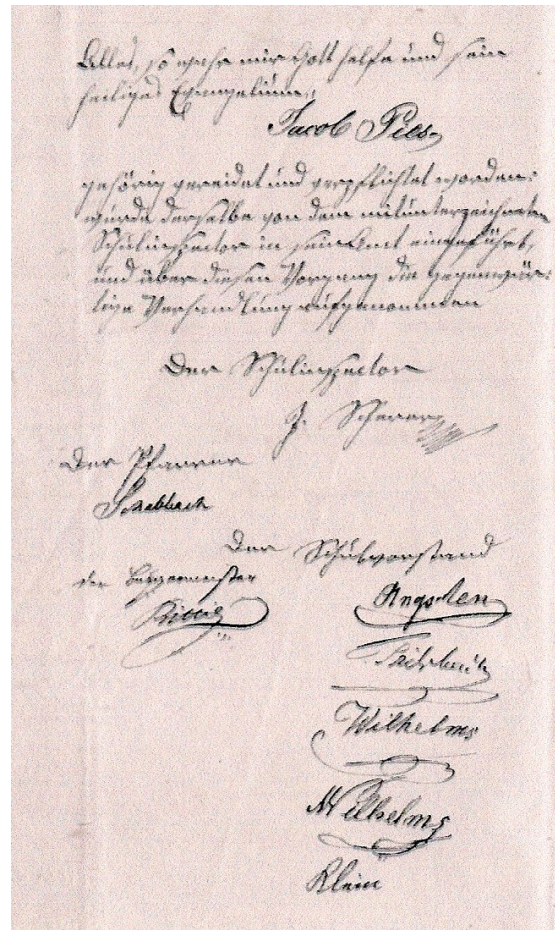 Alles, so wahr mir Gott helfe und sein
heiliges Evangelium."
Jacob Pies
gehörig vereidet und verpflichtet worden:
wurde derselbe von dem mitunterzeichneten
Schulinspector in sein Amt eingeführt,
und über diesen Vorgang die gegenwär:
tige Verhandlung aufgenommen
Der Schulinspector
J. Scherer
Der Pfarrer
Schabbach
Der Schulvorstand
der Bürgermeister
Wilhelms
Wilhelms
Klein